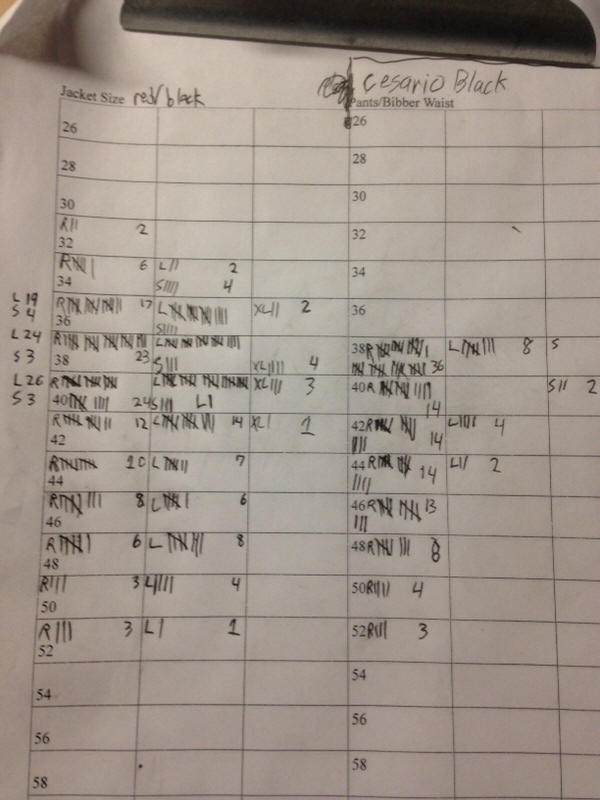 Cesario Black
Jacket Size red/black
Pants/Bibber Waist
26 26
28 28
30 30
R 2
32 32
R 6 L 2
S 4
34 34
L 19
S 4
R 17 L XL 2
36 S 36
L 24
R L 38 R L 8 S
S 3
38 23 S XL 4 36
L 26
R L XL 3 40 R S 2
S 3
40 24 S L 14
R 12 L 14 XL 1 42 R L 4
42 14
R 10 L 7 44 R 14 L 2
44
R 8 L 6 46 R 13
46
R 6 L 8 48 R 8
48
R 3 L 4 50 R 4
50
R 3 L 1 52 R 3
52
54 54
56 56
58 58